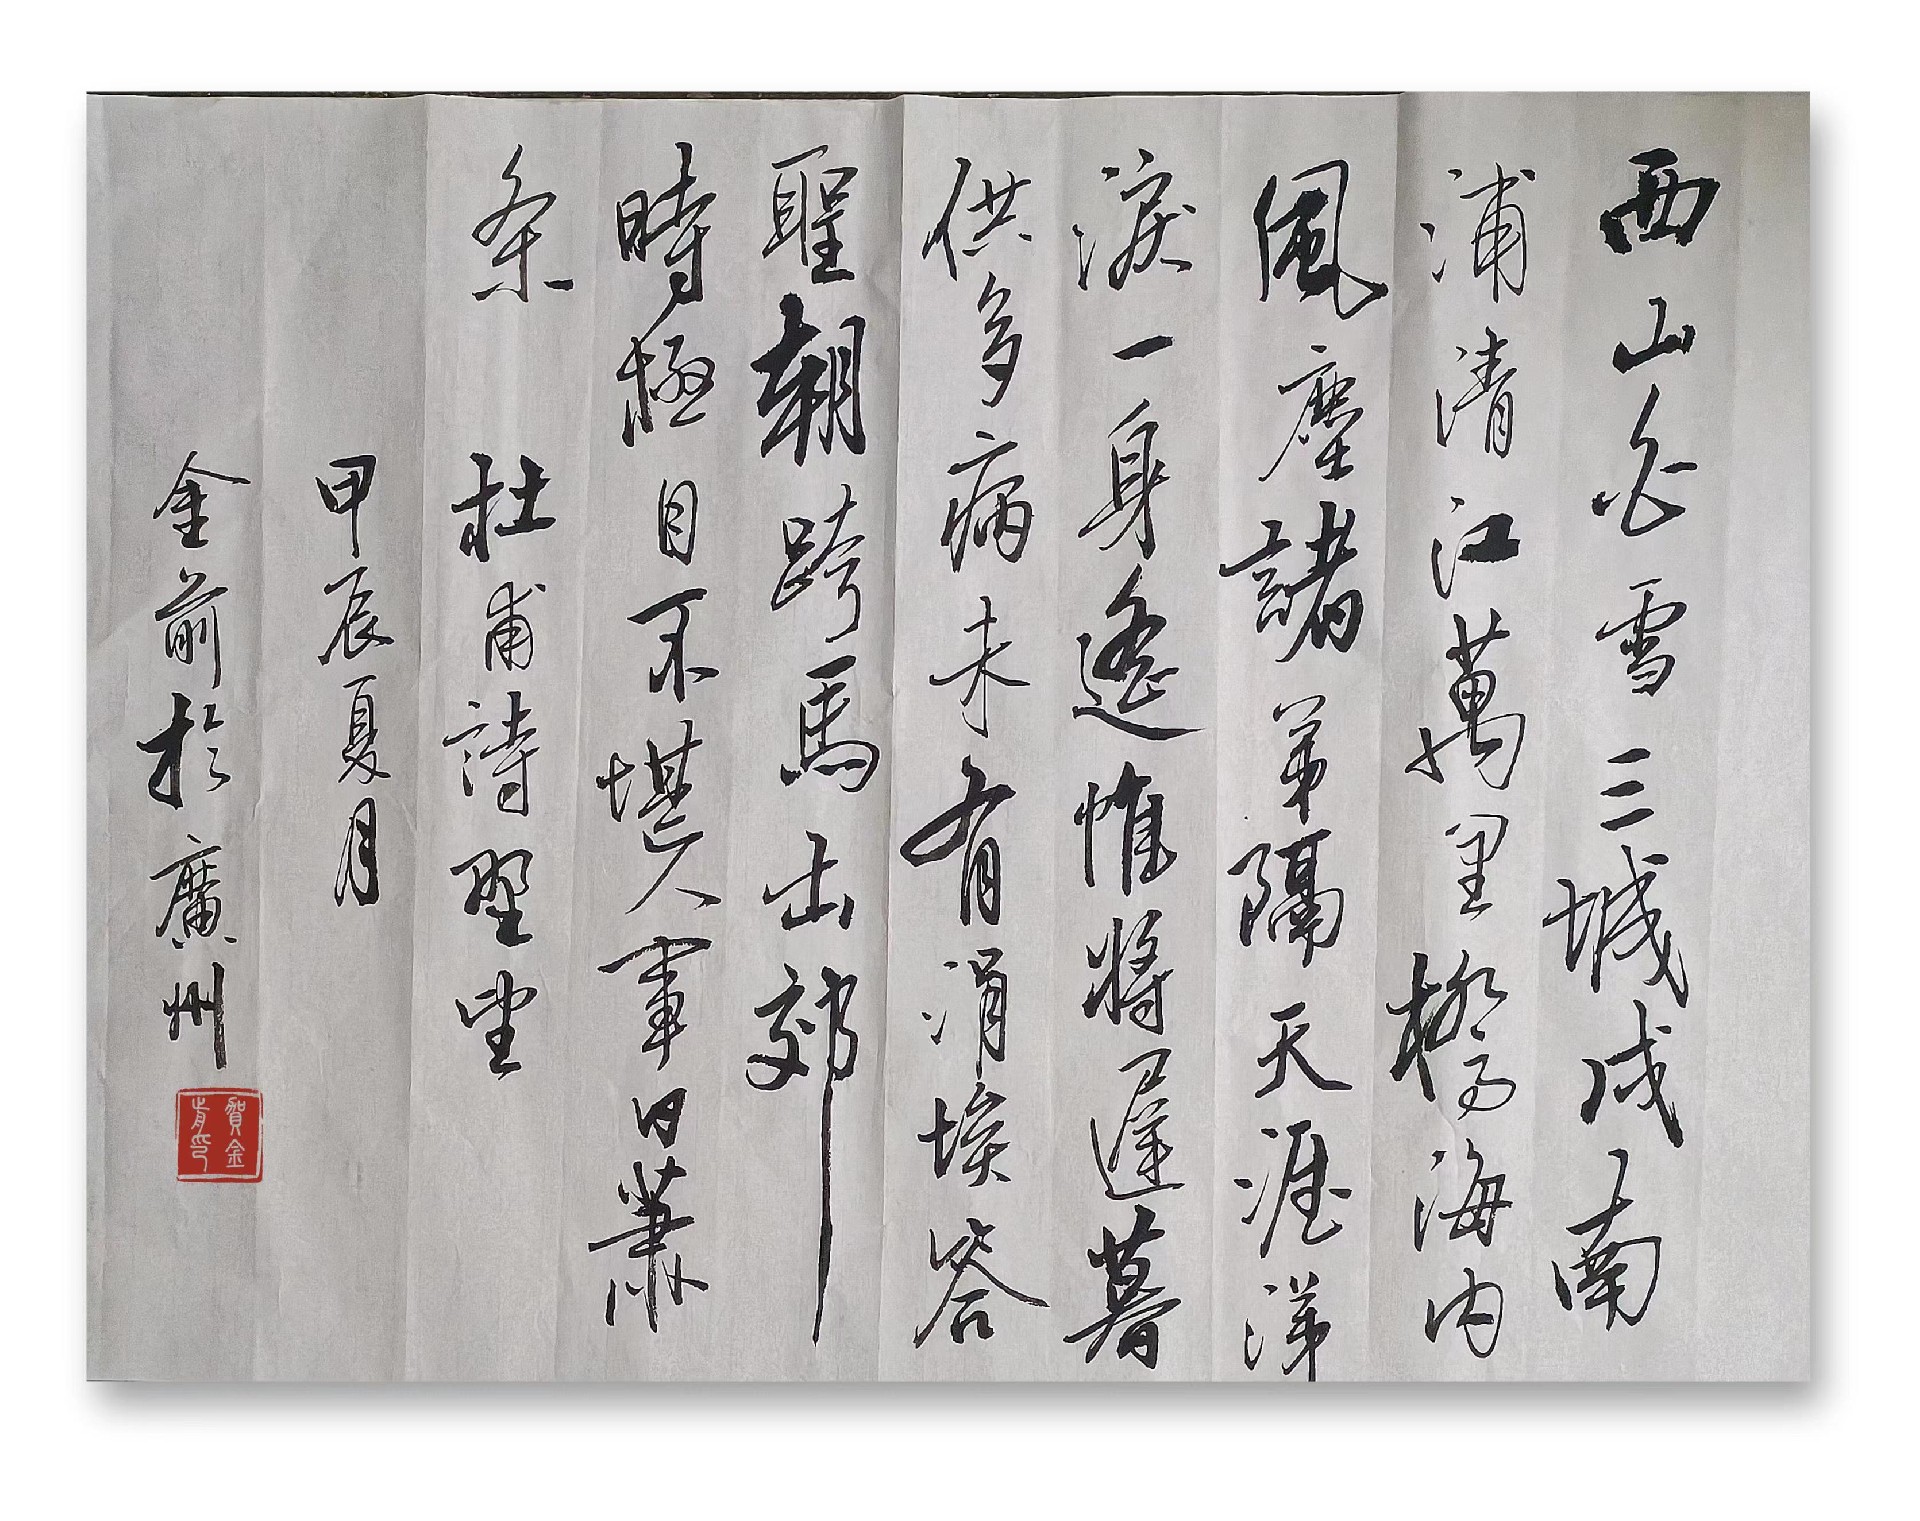 西山白雪三城戍南
浦清江萬里橋海内
風塵諸弟隔天涯涕
淚一身遙惟將遲暮
供多病未有涓埃答
聖朝跨馬出郊
時極目不堪人事日蕭
条 杜甫詩野望
甲辰夏月
金前於廣州
賀金
前印